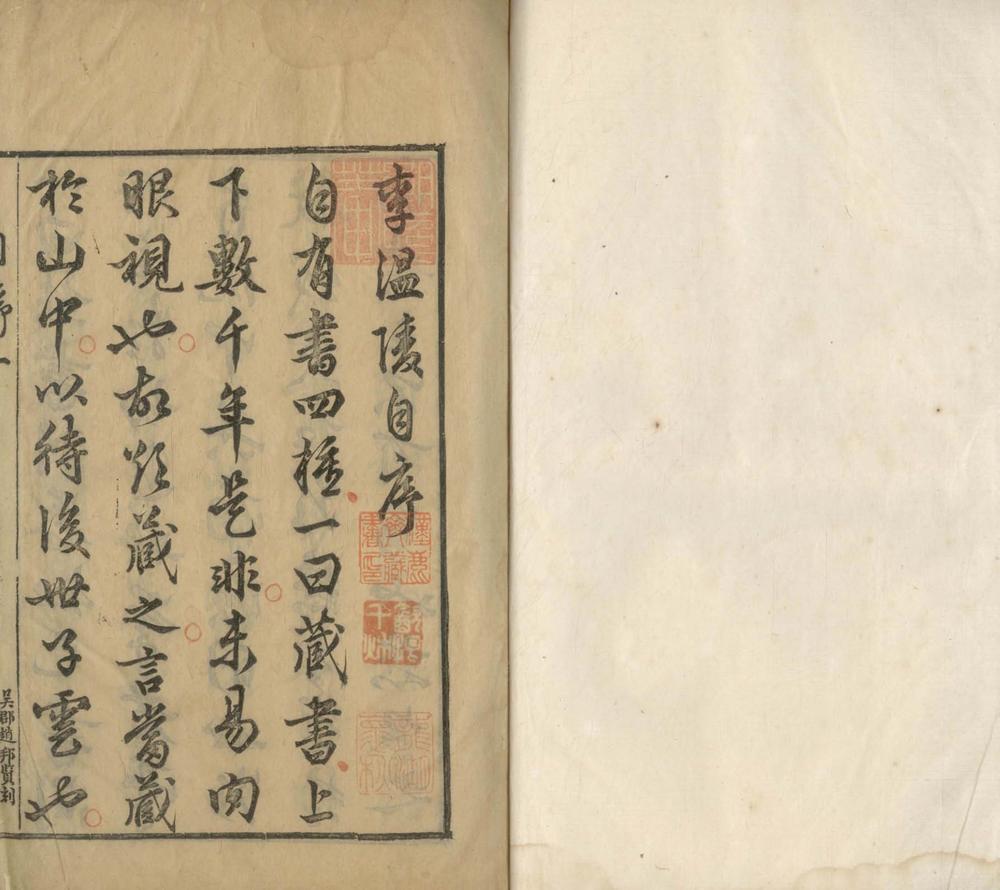 李温陵自序
自有書四種一曰藏書上
下數千年是非未易肉
眼視也故欲藏之言當藏
於山中以待後世子雲也
吳郡趙邦賢刻